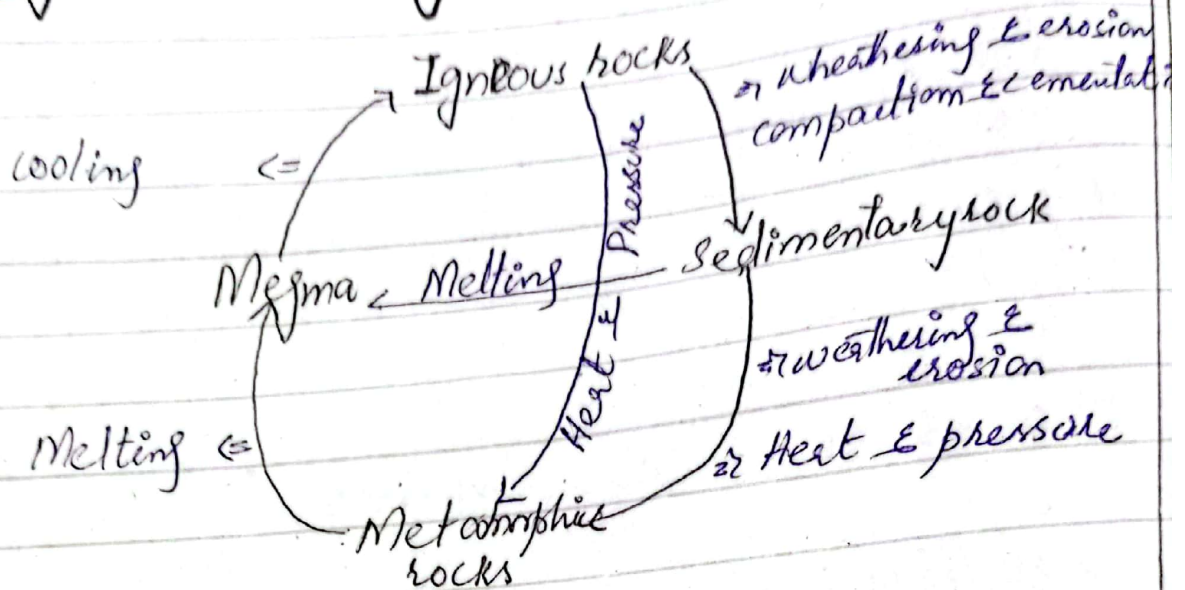 Igneous rocks
⇒ wheathering & erosion
compaction & cementati
cooling <=
Pressure
Sedimentary rock
Megma
Melting
Heat &
⇒ weathering &
erosion
Melting <=
⇒ Heat & pressure
Metamorphic
rocks